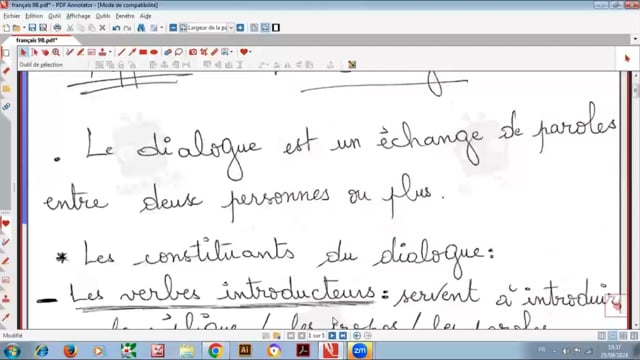 français 9B.pdf* - PDF Annotator - [Mode de compatibilité]
Fichier Edition Outil Affichage Document Fenêtre Aide
Largeur de la p
Outil de sélection
. Le dialogue est un échange de paroles
entre deux personnes ou plus.
* Les constituants du dialogue:
- Les verbes introducteurs: servent à introduire
/ les propos / les paroles
Modifié
1 sur 5
FR
19:37